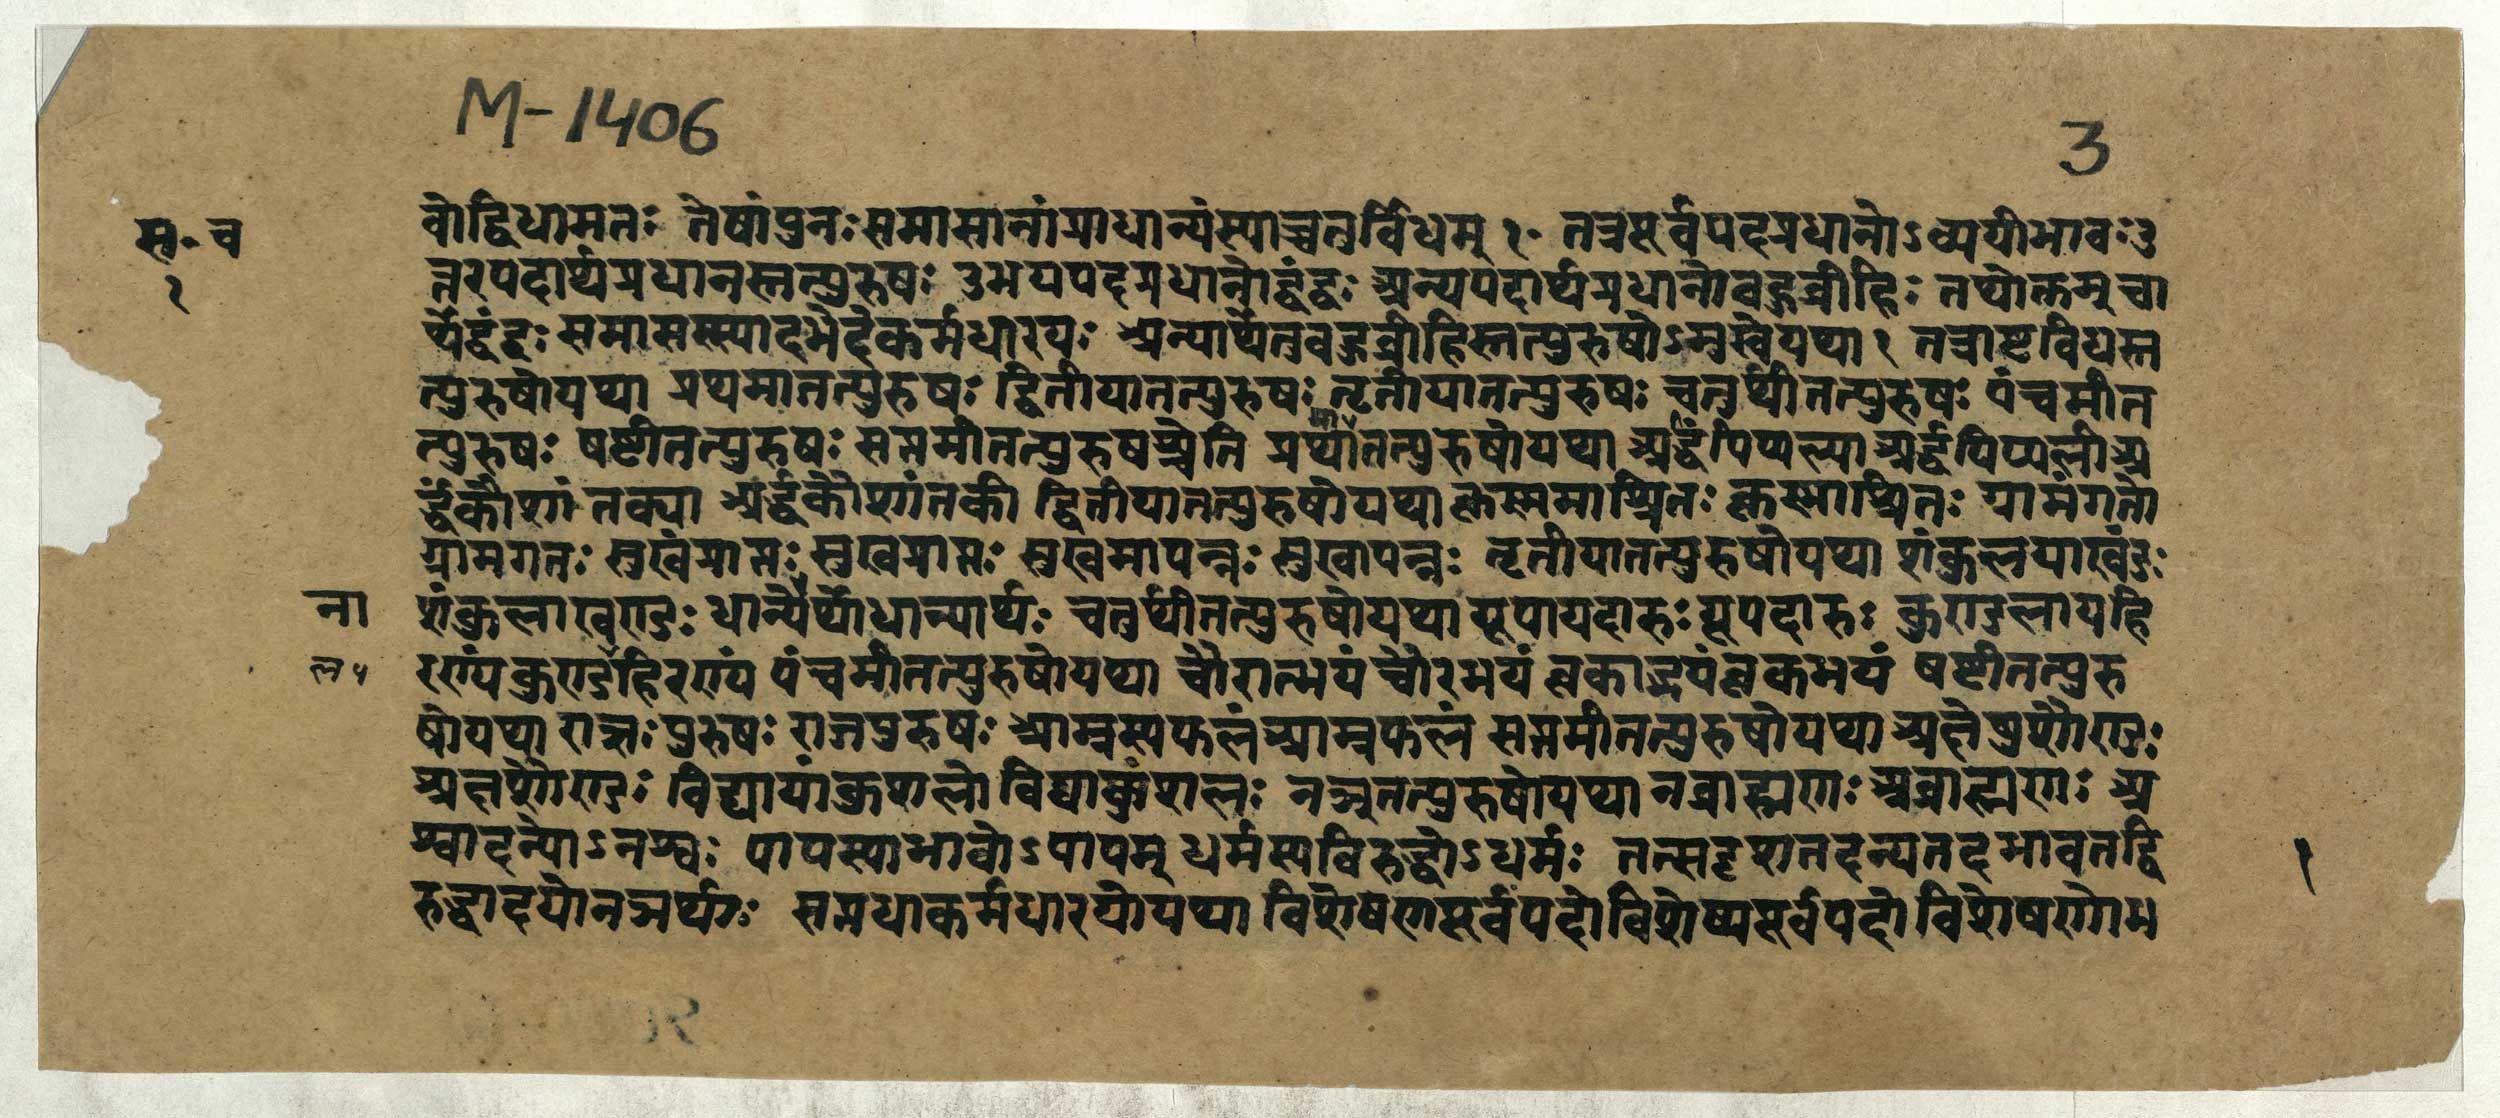 M-1406
3
स॰ च
१
वोद्विधामतः तेषांपुनःसमासानांप्राधान्यंस्याच्चतुर्विधम् १॰ तत्रपूर्वपदप्रधानोऽव्ययीभावःउ
त्तरपदार्थप्रधानस्तत्पुरुषः उभयपदप्रधानोद्वंद्वः अन्यपदार्थप्रधानोबहुव्रीहिः तथोक्तम्चा
र्थेद्वंद्वः समासस्स्यादभेदेकर्मधारयः अन्यार्थेतुबहुव्रीहिस्तत्पुरुषोऽमुत्रवैयथा १ तत्राष्टविधस्त
त्पुरुषोयथा प्रथमातत्पुरुषः द्वितीयातत्पुरुषः तृतीयातत्पुरुषः चतुर्थीतत्पुरुषः पंचमीत
त्पुरुषः षष्टीतत्पुरुषः सप्तमीतत्पुरुषश्चेति प्रथमातत्पुरुषोयथा अर्द्धंपिप्पल्या अर्द्धपिप्पलीअ
र्द्धंकोशांतक्या अर्द्धकोशांतकी द्वितीयातत्पुरुषोयथा कृस्नमाश्रितः कृस्नाश्रितः ग्रामंगतो
ग्रामगतः सुखंप्राप्तः सुखप्राप्तः सुखमापन्नः सुखापन्नः तृतीयातत्पुरुषोयथा शंकुलयाखंडः
ना
शंकुलाखण्डः धान्येर्थोधान्यार्थः चतुर्थीतत्पुरुषोयथा यूपायदारुः यूपदारुः कुण्डलायहि
ल५
रण्यंकुण्डहिरण्यं पंचमीतत्पुरुषोयथा चौरात्भयं चौरभयं वृकाद्भयंवृकभयं षष्टीतत्पुरु
षोयथा राज्ञः पुरुषः राजपुरुषः आम्रस्यफलंआम्रफलं सप्तमीतत्पुरुषोयथा अक्षेषुशौण्डः
अक्षशौण्डः विद्यायांकुशलो विद्याकुशलः नञ्तत्पुरुषोयथा नब्राह्मणः अब्राह्मणः अ
श्वादन्योऽनश्वः पापस्याभावोऽपापम् धर्मस्यविरुद्धोऽधर्मः तत्सदृशतदन्यतदभावतद्वि
१
रुद्धादयोनञर्थाः सप्तधाकर्मधारयोयथा विशेषणपूर्वपदोविशेष्यपूर्वपदो विशेषणोभ